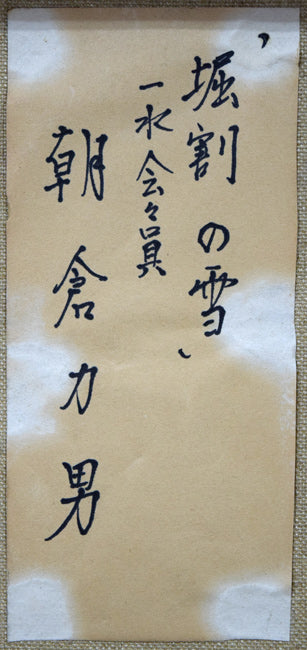 「堀割の雪」
一水会々員
朝倉力男